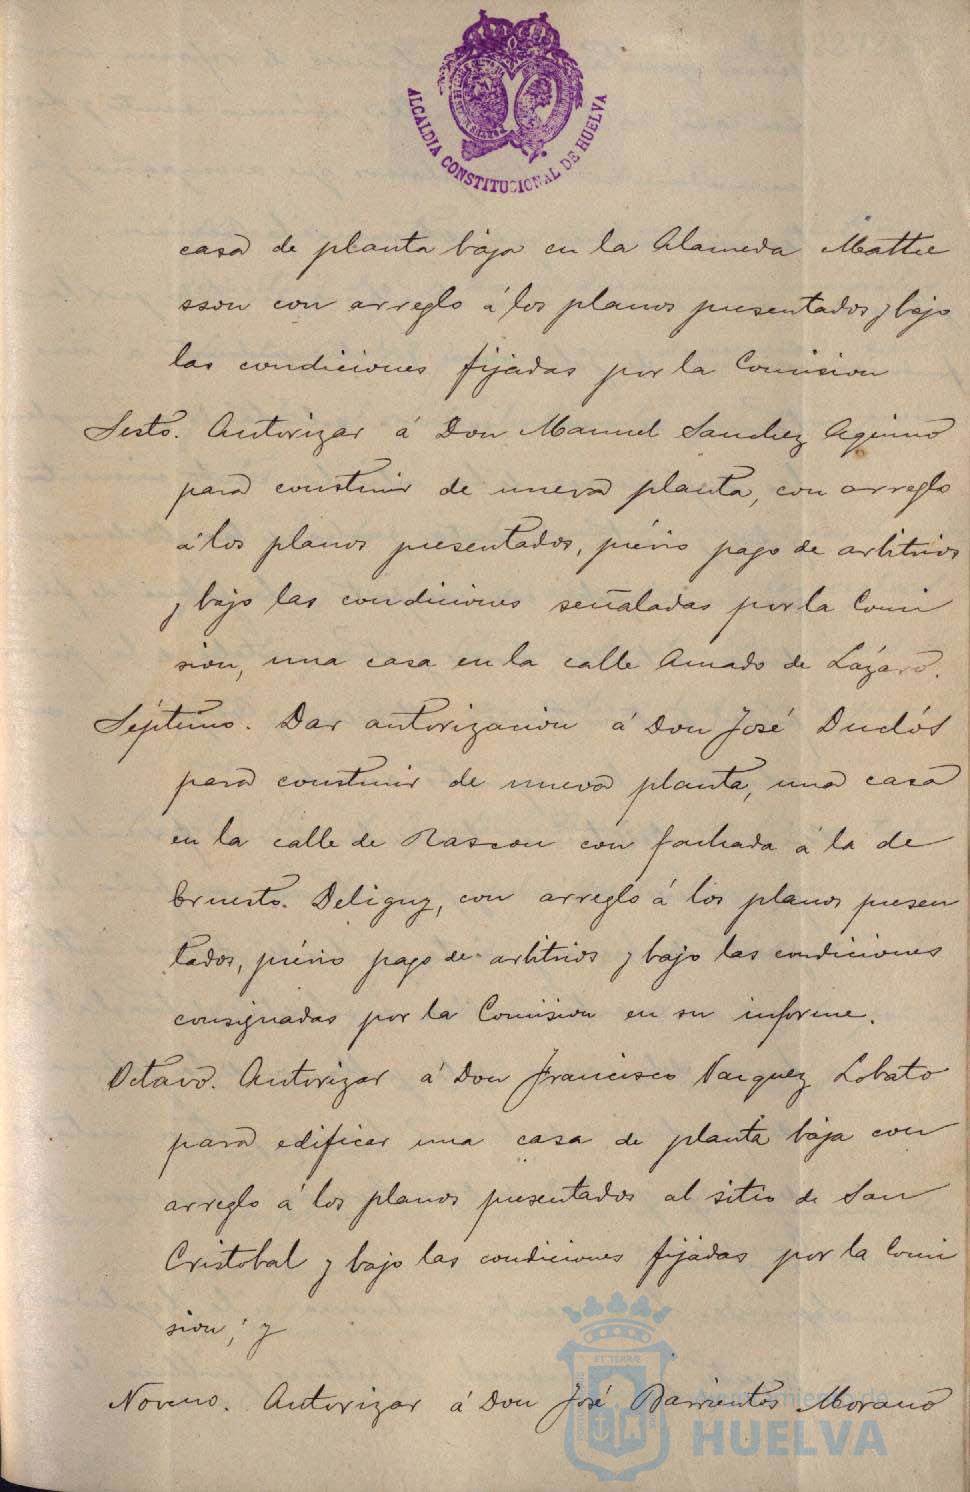 ALCALDIA CONSTITUCIONAL DE HUELVA
casa de planta baja en la Alameda Mattie
sson con arreglo á los planos presentados y bajo
las condiciones fijadas por la Comision
Sesto. Autorizar á Don Manuel Sanchez Aquino
para construir de nueva planta, con arreglo
á los planos presentados, prévio pago de arbitrios
y bajo las condiciones señaladas por la Comi
sion, una casa en la calle Amado de Lázaro.
Séptimo. Dar autorizacion á Don José Duclós
para construir de nueva planta, una casa
en la calle de Rascon con fachada á la de
Ernesto Deligny, con arreglo á los planos presen
tados, prévio pago de arbitrios y bajo las condiciones
consignadas por la Comision en su informe.
Octavo. Autorizar á Don Francisco Vazquez Lobato
para edificar una casa de planta baja con
arreglo á los planos presentados al sitio de San
Cristobal y bajo las condiciones fijadas por la Comi
sion; y
Noveno. Autorizar á Don José Barrientos Morano
Ayuntamiento de
HUELVA